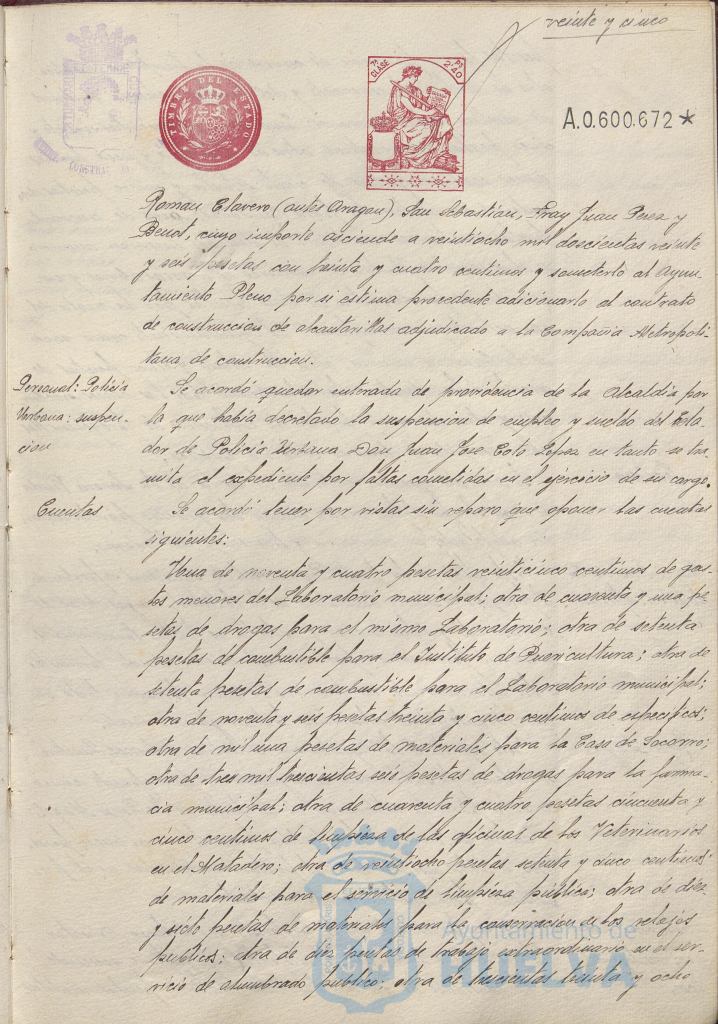 veinte y cinco
TIMBRE DEL ESTADO
7ª CLASE
2'40
A.0.600.672*
Roman Clavero (antes Aragon), San Sebastian, Fray Juan Perez y
Benot, cuyo importe asciende a veintiocho mil doscientas veinte
y seis pesetas con treinta y cuatro centimos y someterlo al Ayun-
tamiento Pleno por si estima procedente adicionarlo al contrato
de construccion de alcantarillas adjudicado a la Compañia Metropoli-
tana de construccion.
Personal: Policia
Urbana: suspen-
cion
Se acordó quedar enterada de providencia de la Alcaldia por
la que habia decretado la suspencion de empleo y sueldo del Cela-
dor de Policia Urbana Don Juan Jose Coto Lopez en tanto se tra-
mita el expediente por faltas cometidas en el ejercicio de su cargo.
Cuentas
Se acordó tener por vistas sin reparo que oponer las cuentas
siguientes:
Una de noventa y cuatro pesetas veinticinco centimos de gas-
tos menores del Laboratorio municipal; otra de cuarenta y una pe-
setas de drogas para el mismo Laboratorio; otra de setenta
pesetas de combustible para el Instituto de Puericultura; otra de
setenta pesetas de combustible para el Laboratorio municipal;
otra de noventa y seis pesetas treinta y cinco centimos de especificos;
otra de mil una pesetas de materiales para la Casa de Socorro;
otra de tres mil trescientas seis pesetas de drogas para la farma-
cia municipal; otra de cuarenta y cuatro pesetas cincuenta y
cinco centimos de limpieza de las oficinas de los Veterinarios
en el Matadero; otra de veintiocho pesetas setenta y cinco centimos
de materiales para el servicio de limpieza publica; otra de diez
y siete pesetas de materiales para la conservacion de los relojes
publicos; otra de diez pesetas de trabajo extraordinario en el ser-
vicio de alumbrado publico; otra de trescientas treinta y ocho
Ayuntamiento de
HUELVA